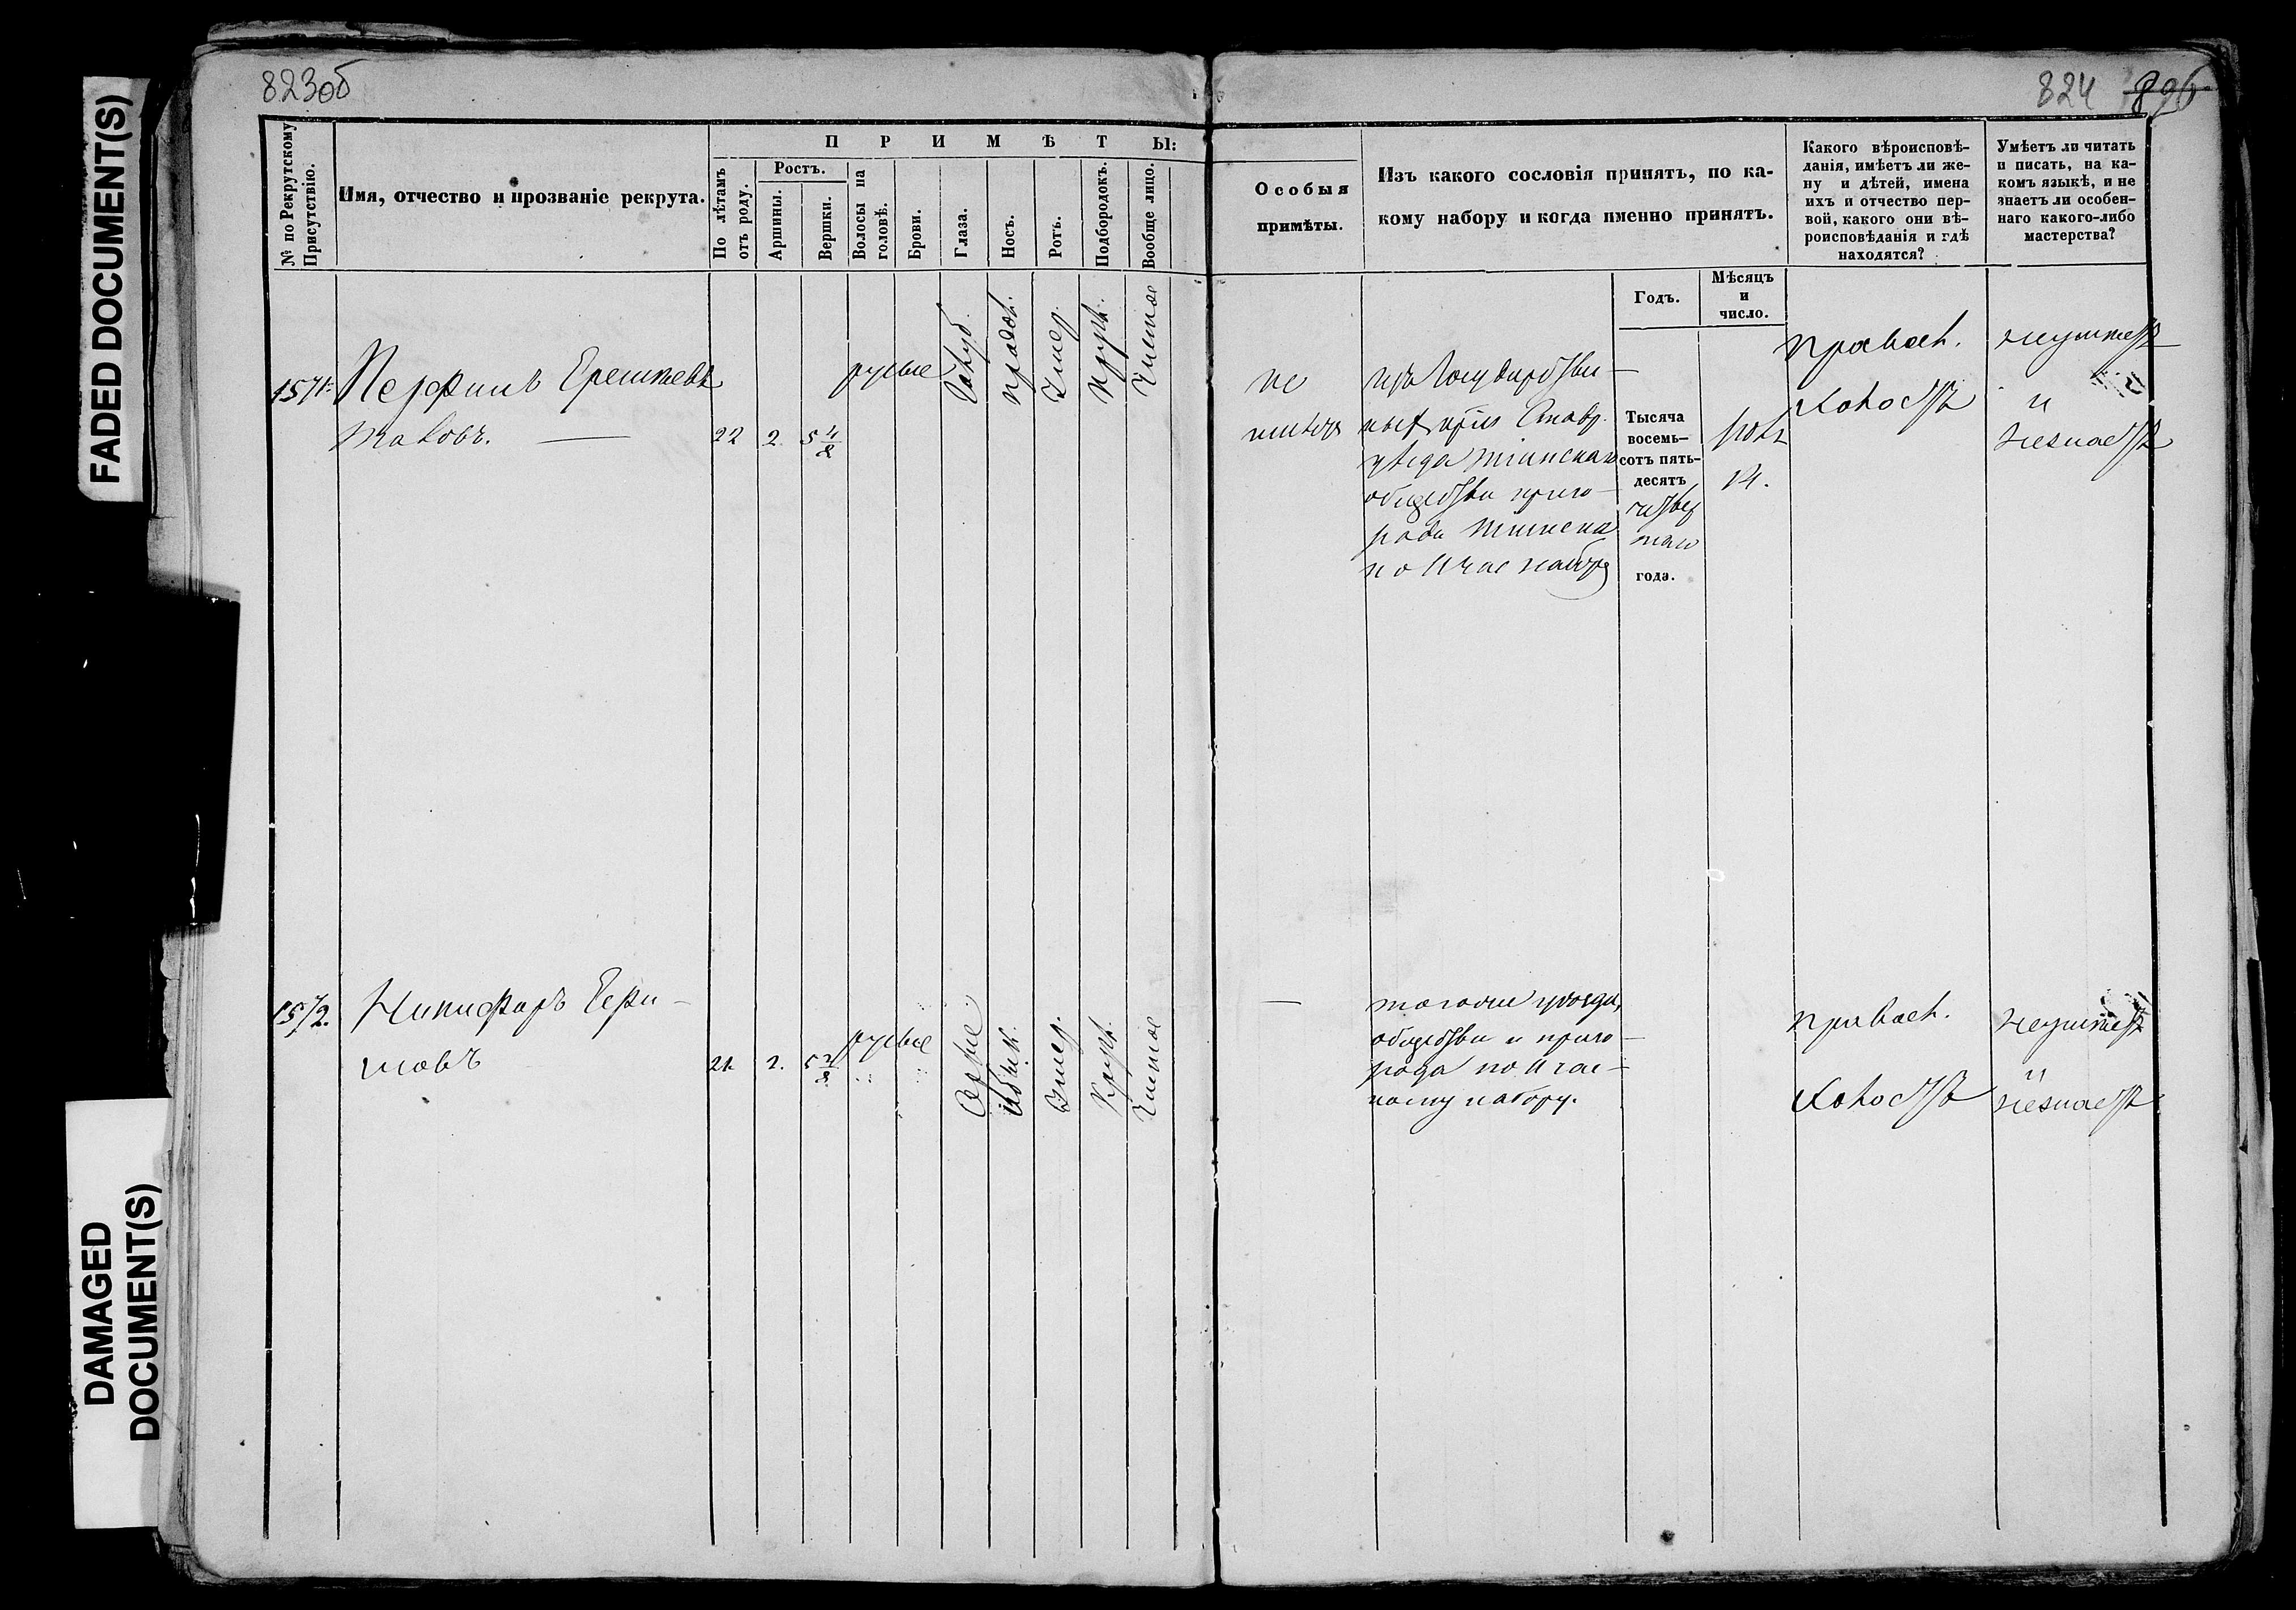 823об
824 826
FADED DOCUMENT(S)
DAMAGED
DOCUMENT(S)
№ по Рекрутскому
Присутствію.
Имя, отчество и прозваніе рекрута.
П Р И М Ѣ Т Ы:
По лѣтамъ
отъ роду.
Ростъ.
Аршины.
Вершки.
Волосы на
головѣ.
Брови.
Глаза.
Носъ.
Ротъ.
Подбородокъ.
Вообще лицо.
Особыя
примѣты.
Изъ какого сословія принятъ, по ка-
кому набору и когда именно принятъ.
Годъ.
Мѣсяцъ
и
число.
Какого вѣроисповѣ-
данія, имѣетъ ли же-
ну и дѣтей, имена
ихъ и отчество пер-
вой, какого они вѣ-
роисповѣданія и гдѣ
находятся?
Умѣетъ ли читать
и писать, на ка-
комъ языкѣ, и не
знаетъ ли особен-
наго какого-либо
мастерства?
1571.
22 2. 5 4/8
русые
Голуб.
Умер.
Кругл.
Чистое
не
имѣетъ
изъ Государстве-
общества приго-
рода
набору
Тысяча
восемь-
сотъ пять-
десятъ
четвер
таго
года.
14.
правосл.
Холостъ
неуметъ
и
незнаетъ
1572.
Никифоръ
21. 2. 5 2/8
русые
Серые
Умер.
Кругл.
Чистое
—
тогоже уѣзда,
общества и приго-
рода по
ному набору.
правосл.
Холостъ
неуметъ
и
незнаетъ